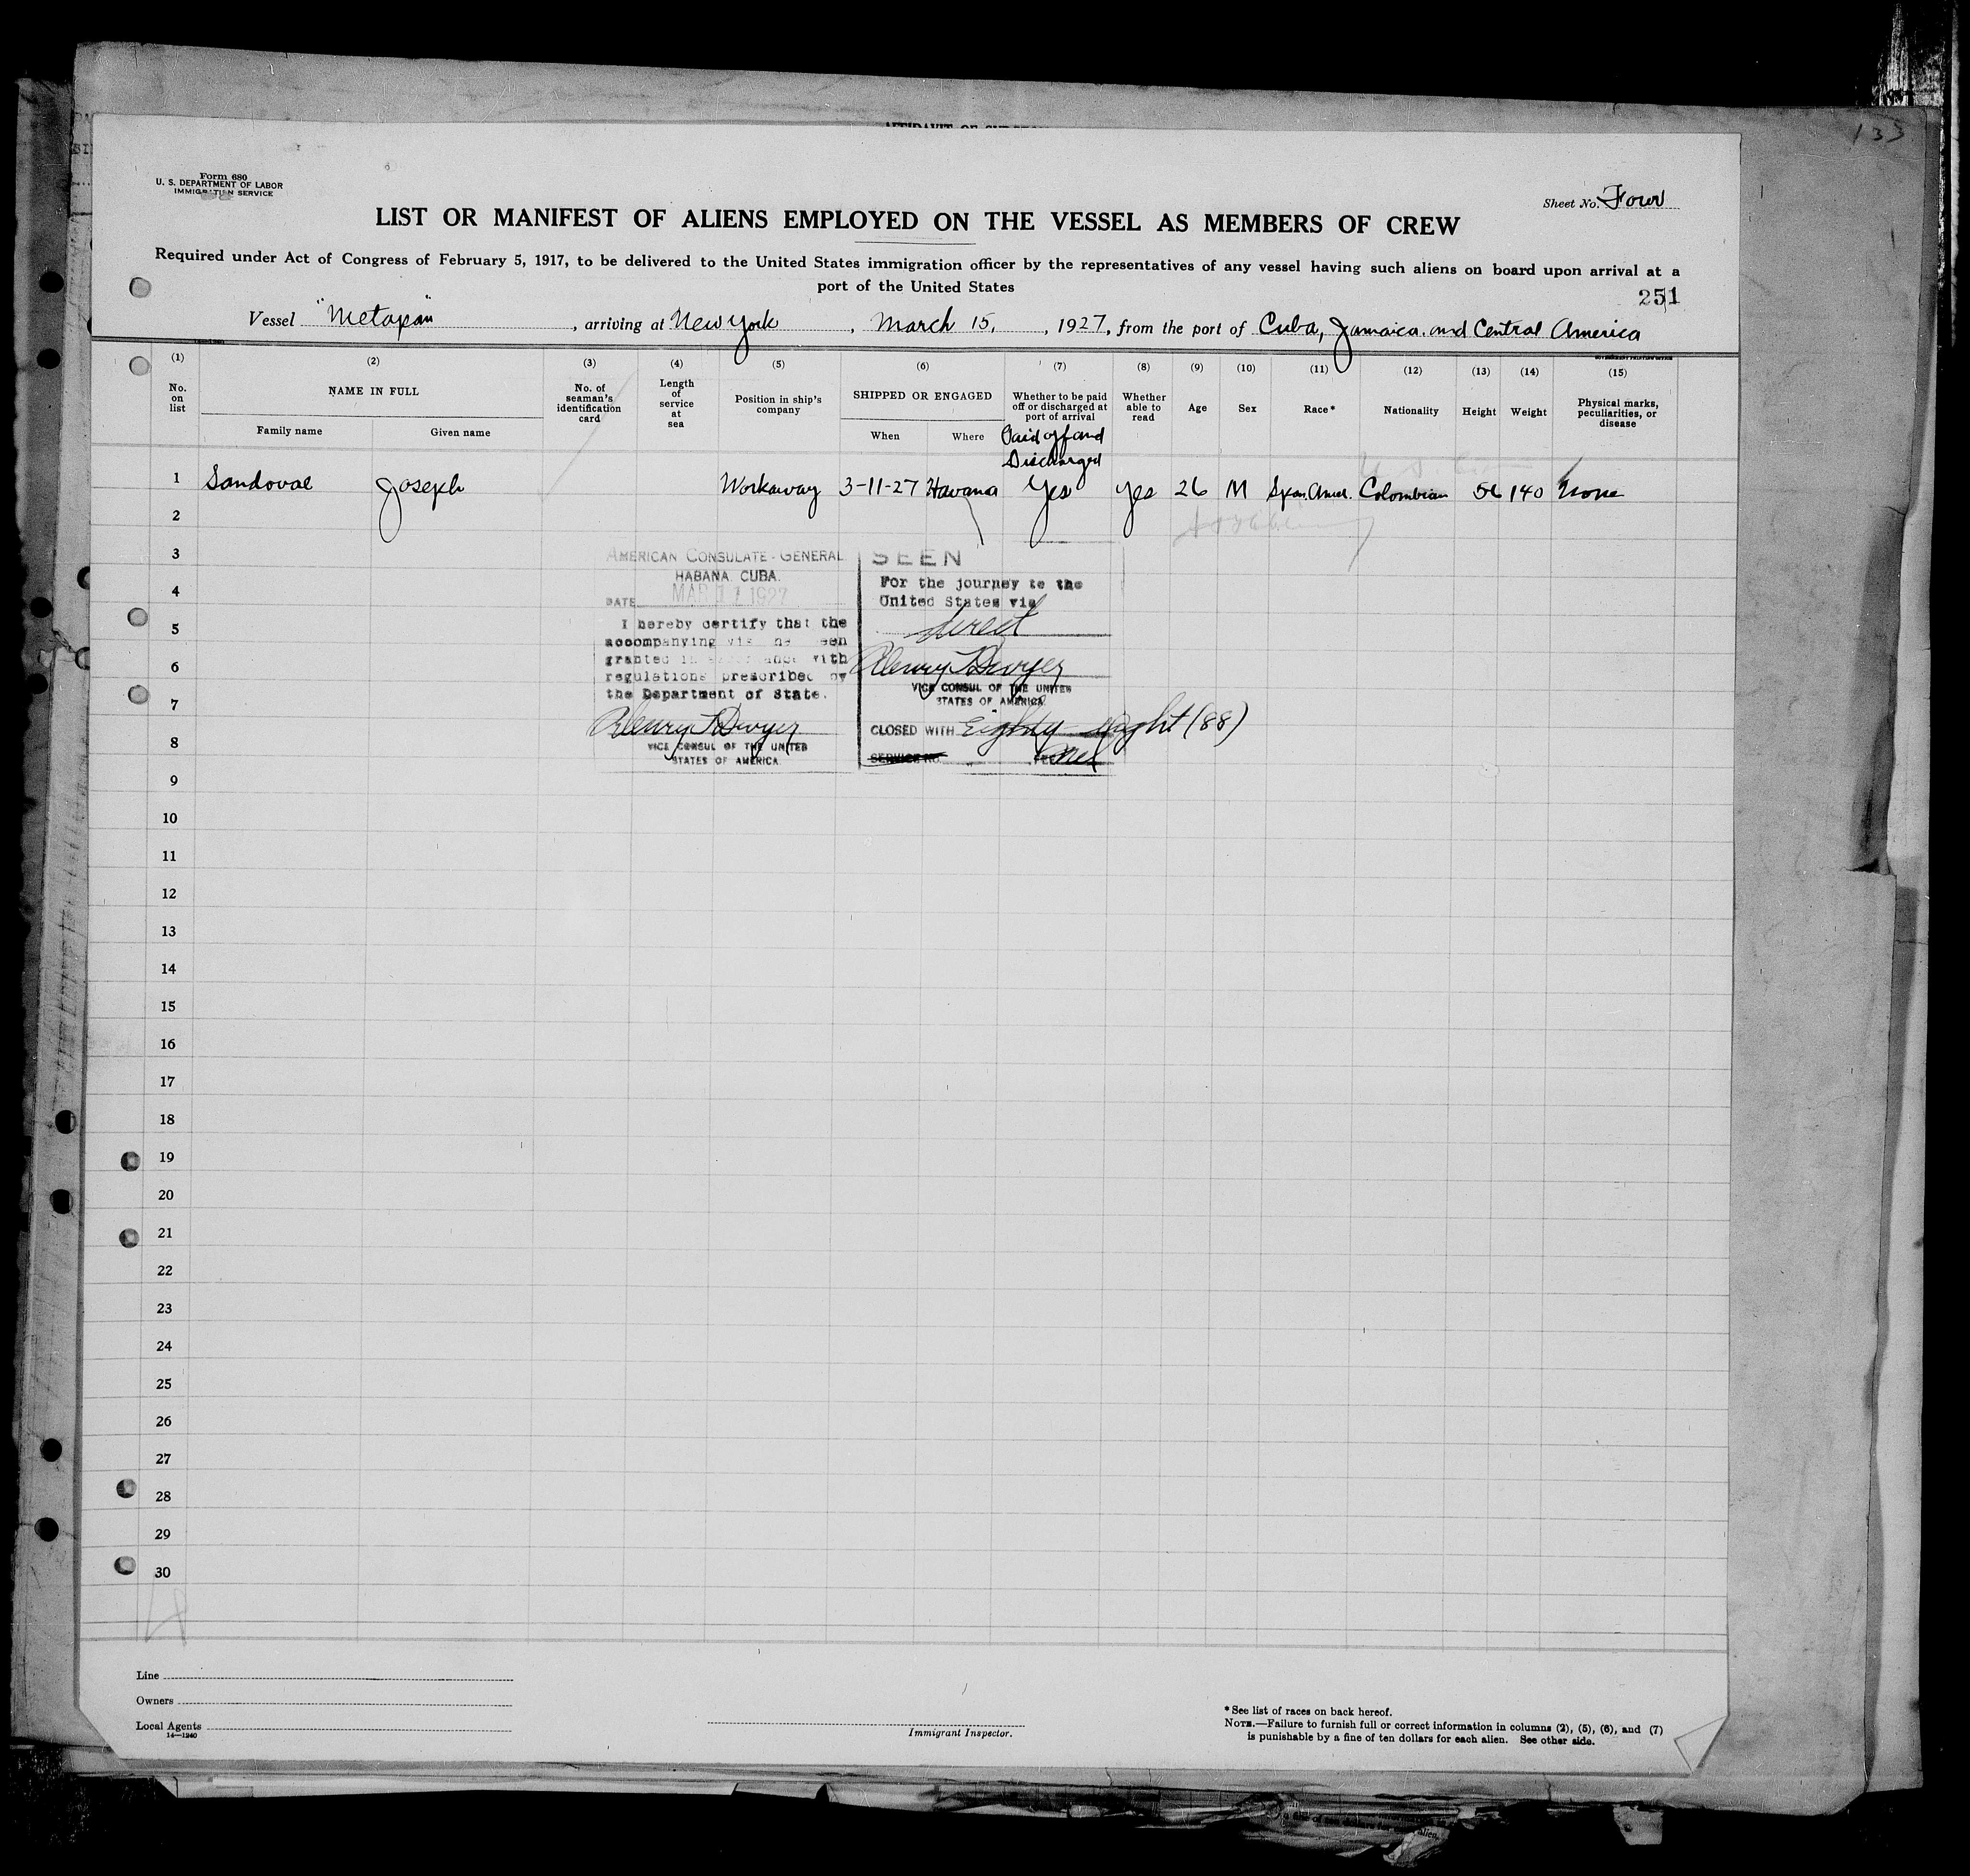 133
Form 680
U. S. DEPARTMENT OF LABOR
IMMIGRATION SERVICE
Sheet No. Four
LIST OR MANIFEST OF ALIENS EMPLOYED ON THE VESSEL AS MEMBERS OF CREW
Required under Act of Congress of February 5, 1917, to be delivered to the United States immigration officer by the representatives of any vessel having such aliens on board upon arrival at a
port of the United States
251
Vessel "Metapan", arriving at New York, March 15, 1927, from the port of Cuba, Jamaica. and Central America
(1) (2) (3) (4) (5) (6) (7) (8) (9) (10) (11) (12) (13) (14) (15)
No. on list
NAME IN FULL
Family name Given name
No. of seaman's identification card
Length of service at sea
Position in ship's company
SHIPPED OR ENGAGED
When Where
Whether to be paid off or discharged at port of arrival
Whether able to read
Age
Sex
Race*
Nationality
Height
Weight
Physical marks, peculiarities, or disease
Paid off and
Discharged
1 Sandoval Joseph Workaway 3-11-27 Havana Yes Yes 26 M Span. Amer. Colombian 56 140 None
2
3
4
5
6
7
8
9
10
11
12
13
14
15
16
17
18
19
20
21
22
23
24
25
26
27
28
29
30
AMERICAN CONSULATE-GENERAL
HABANA, CUBA.
DATE MAR 11 1927
I hereby certify that the
accompanying
granted in with
regulations prescribed by
the Department of State.
Henry T Dwyer
VICE CONSUL OF THE UNITED
STATES OF AMERICA.
SEEN
For the journey to the
United States via
direct
Henry T Dwyer
VICE CONSUL OF THE UNITED
STATES OF AMERICA
CLOSED WITH Eighty eight (88)
SERVICE NO.
Line
Owners
Local Agents
14—1240
Immigrant Inspector.
* See list of races on back hereof.
NOTE.—Failure to furnish full or correct information in columns (2), (5), (6), and (7)
is punishable by a fine of ten dollars for each alien. See other side.